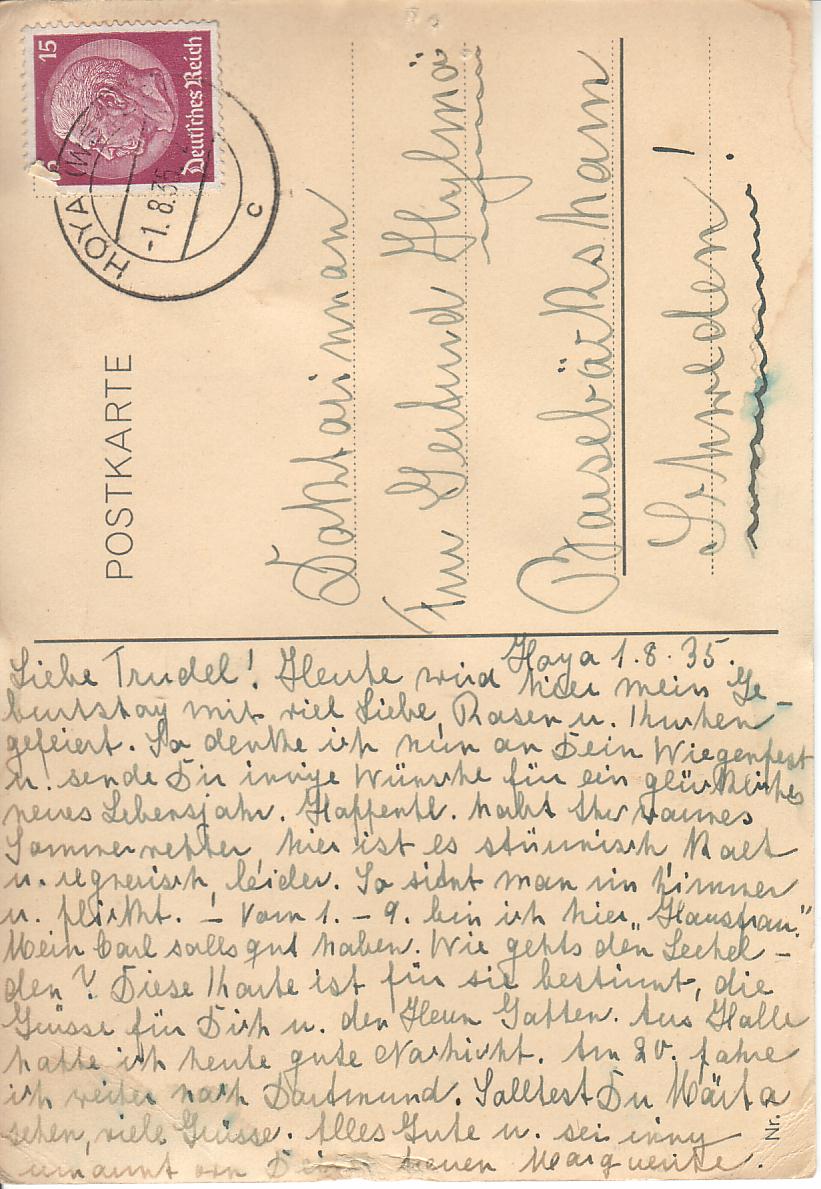 Deutsches Reich
15
HOYA (WESER)
-1.8.35
c
POSTKARTE
Doktorinnan
Frau Gertrud Hylmö
Barsebäckshamn
Schweden!
Hoya 1.8.35.
Liebe Trudel! Heute wird hier mein Ge-
burtstag mit viel Liebe, Rosen u. Kuchen
gefeiert. So denke ich nun an Dein Wiegenfest
u. sende Dir innige Wünsche für ein glückliches
neues Lebensjahr. Hoffentl. habt Ihr warmes
Sommerwetter hier ist es stürmisch kalt
u. regnerisch, leider. So sitzt man im Zimmer
u. flickt. – Vom 1. – 9. bin ich hier „Hausfrau."
Mein Carl solls gut haben. Wie gehts den
den? Diese Karte ist für sie bestimmt, die
Grüsse für Dich u. den Herrn Gatten. Aus Halle
hatte ich heute gute Nachricht. Am 20. fahre
ich weiter nach Dortmund. Solltest Du Märta
sehen, viele Grüsse. Alles Gute u. sei innig
umarmt von Deiner treuen Marguerite.
Nr.